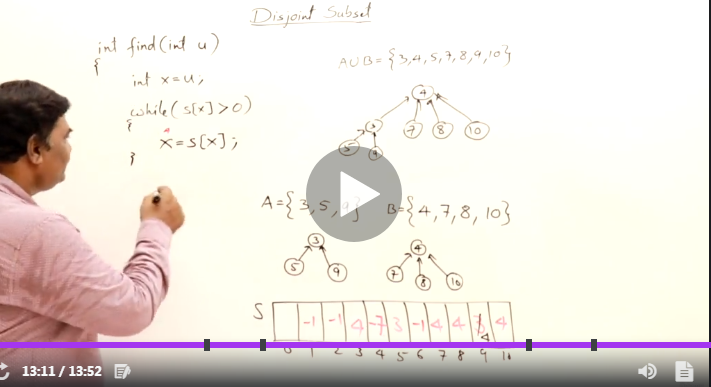 Disjoint Subset
int find(int u)
{
int x=u;
while(s[x]>0)
{
x=s[x];
}
A∪B={3,4,5,7,8,9,10}
4
3 7 8 10
5 9
A={3,5,9} B={4,7,8,10}
3 4
5 9 7 8 10
S -1 -1 4 -7 3 -1 4 4 4
0 1 2 3 4 5 6 7 8 9 10
13:11 / 13:52